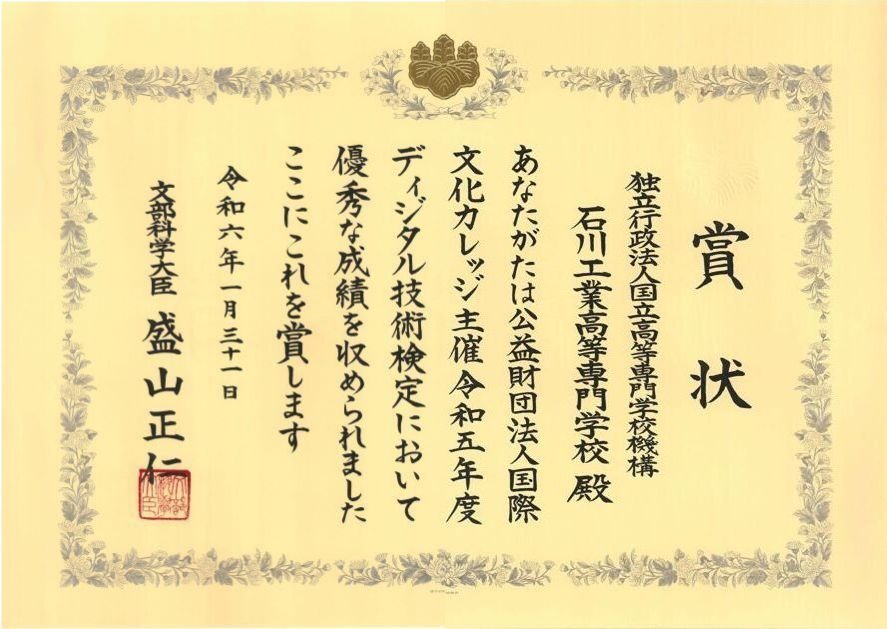 賞状
独立行政法人国立高等専門学校機構
石川工業高等専門学校 殿
あなたがたは公益財団法人国際
文化カレッジ主催令和五年度
ディジタル技術検定において
優秀な成績を収められました
ここにこれを賞します
令和六年一月三十一日
文部科学大臣 盛山正仁